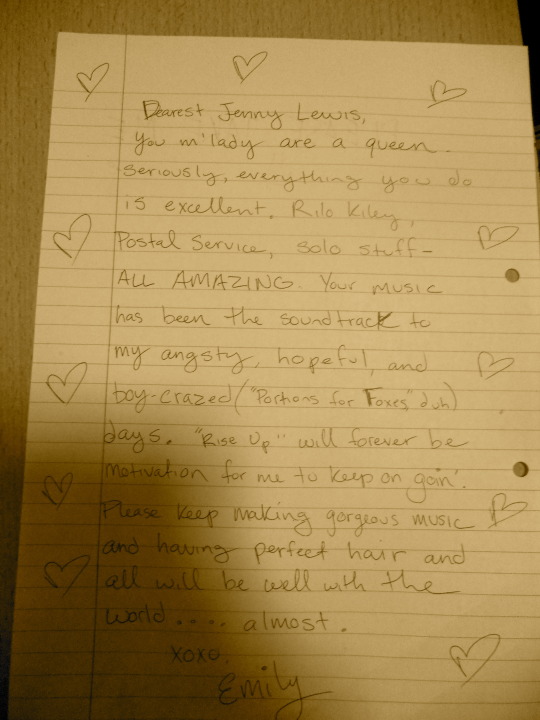 Dearest Jenny Lewis,
You m'lady are a queen.
Seriously, everything you do
is excellent. Rilo Kiley,
Postal Service, solo stuff-
ALL AMAZING. Your music
has been the soundtrack to
my angsty, hopeful, and
boy-crazed ("Portions for Foxes" duh)
days. "Rise Up" will forever be
motivation for me to keep on goin'.
Please keep making gorgeous music
and having perfect hair and
all will be well with the
world.... almost.
xoxo.
Emily